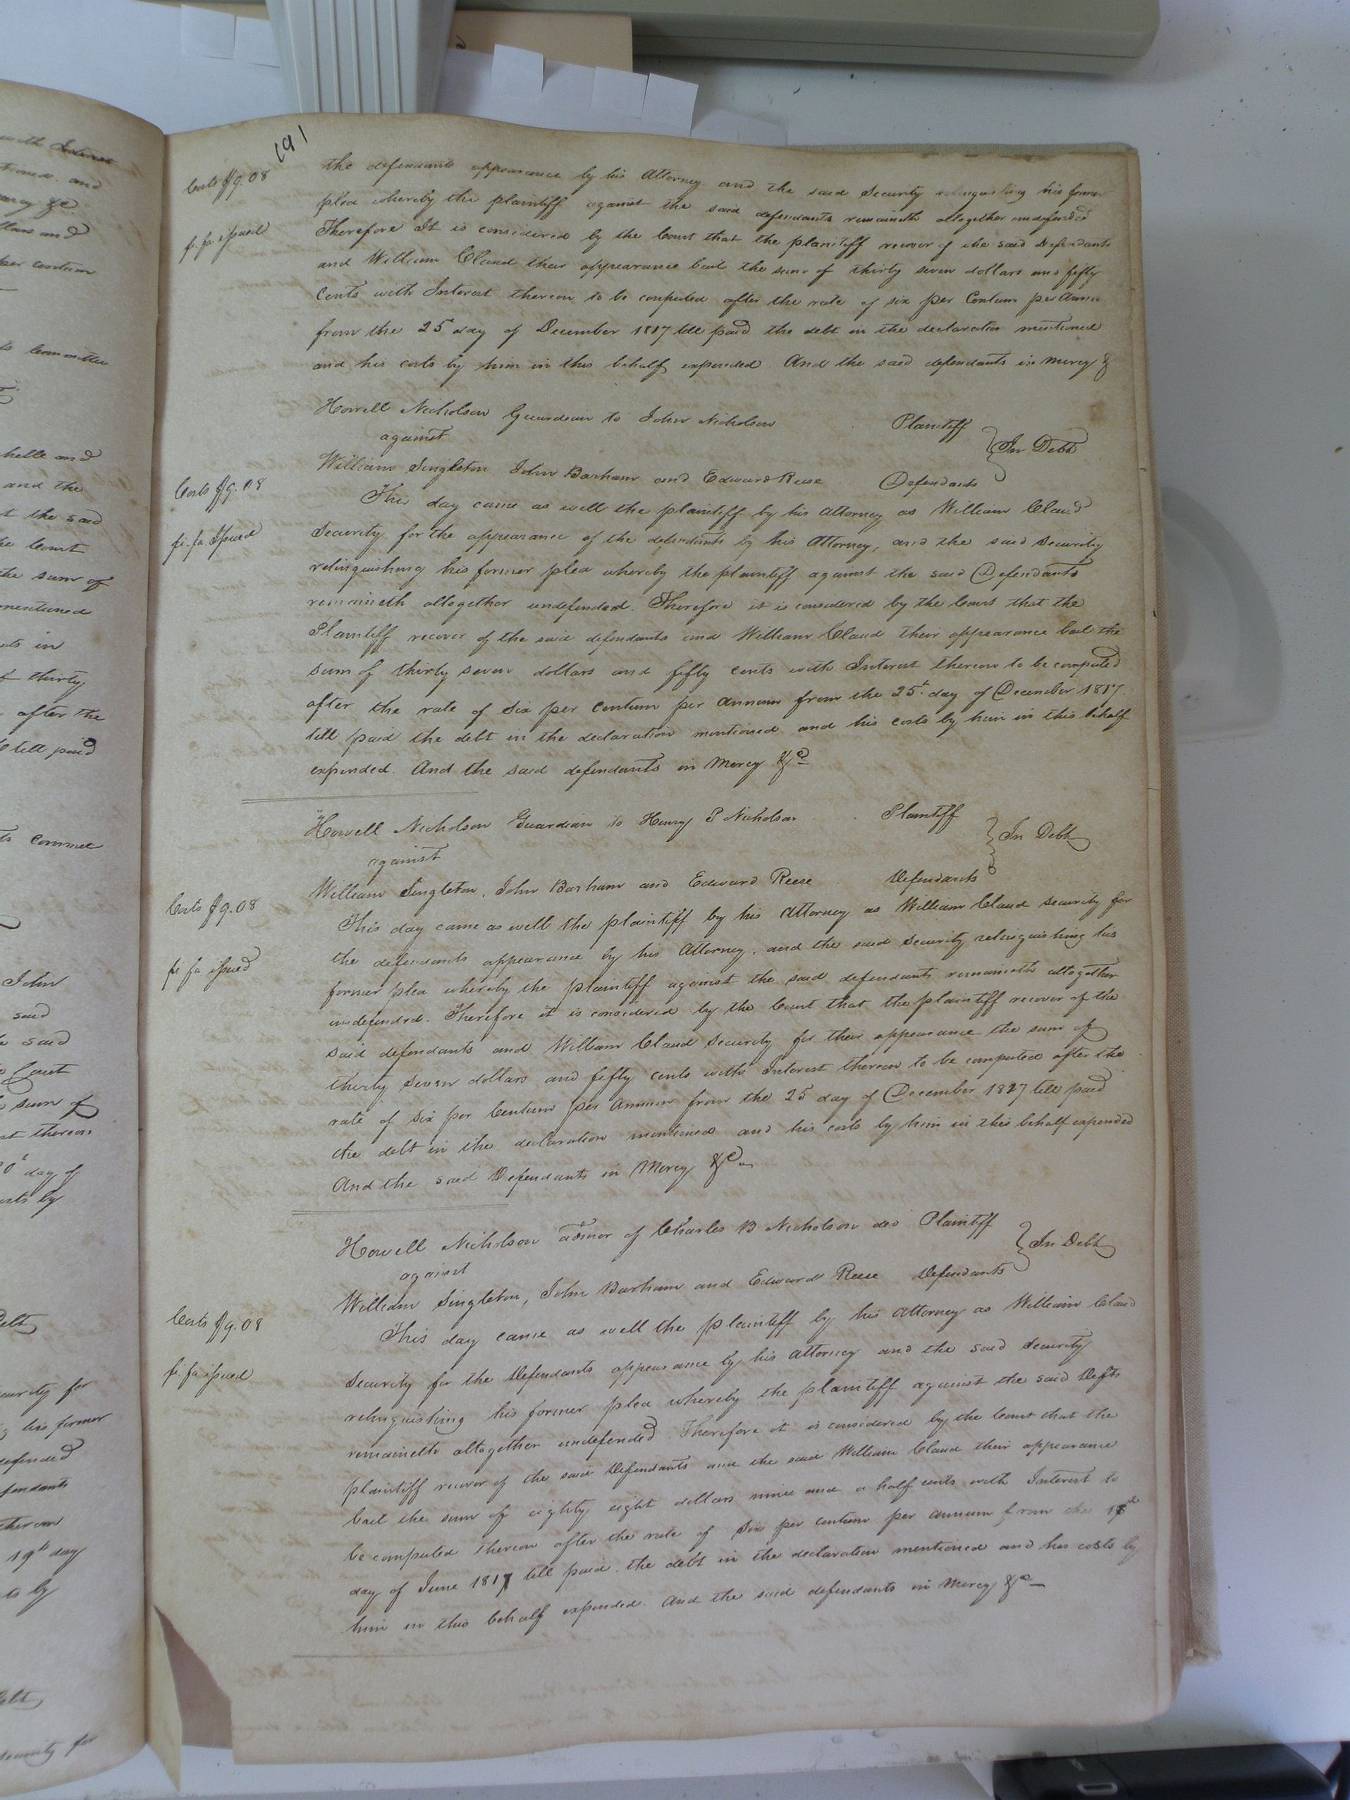 191
Costs $9.08
fi. fa issued
the defendants appearance by his Attorney and the said Security relinquishing his former
plea whereby the plaintiff against the said defendants remaineth altogether undefended
Therefore It is considered by the Court that the plaintiff recover of the said Defendants
and William Claud their appearance bail the sum of thirty seven dollars and fifty
Cents with Interest thereon to be computed after the rate of six per Centum per Annum
from the 25th day of December 1817 till paid the debt in the declaration mentioned
and his costs by him in this behalf expended And the said defendants in mercy &
Howell Nicholson Guardian to John Nicholson Plaintiff
against In Debt
William Singleton John Barham and Edward Reese Defendants
Costs $9.08
fi. fa Issued
This day came as well the plaintiff by his Attorney as William Claud
Security for the appearance of the defendants by his Attorney, and the said Security
relinquishing his former plea whereby the plaintiff against the said Defendants
remaineth altogether undefended. Therefore it is considered by the Court that the
Plaintiff recover of the said defendants and William Claud their appearance bail the
sum of thirty seven dollars and fifty cents with Interest thereon to be computed
after the rate of six per centum per annum from the 25t. day of December 1817.
till paid the debt in the declaration mentioned and his costs by him in this behalf
expended. And the said defendants in Mercy &c
Howell Nicholson Guardian to Henry P Nicholson Plaintiff
against In Debt
William Singleton, John Barham and Edward Reese Defendants
Costs $9.08
fi fa issued
This day came as well the plaintiff by his Attorney as William Claud security for
the defendants appearance by his Attorney, and the said Security relinquishing his
former plea whereby the plaintiff against the said defendants remaineth altogether
undefended. Therefore it is considered by the Court that the plaintiff recover of the
said defendants and William Claud Security for their appearance the sum of
thirty seven dollars and fifty cents with Interest thereon to be computed after the
rate of six per Centum per Annum from the 25 day of December 1817 till paid
the debt in the declaration mentioned and his costs by him in this behalf expended
And the said Defendants in Mercy &c
Howell Nicholson admor of Charles B Nicholson decd Plaintiff
against In Debt
William Singleton, John Barham and Edward Reese Defendants
Costs $9.08
fi. fa issued
This day came as well the plaintiff by his attorney as William Claud
Security for the Defendants appearance by his attorney and the said Security
relinquishing his former plea whereby the plaintiff against the said Defts
remaineth altogether undefended Therefore it is considered by the Court that the
plaintiff recover of the said Defendants and the said William Claud their appearance
bail the sum of eighty eight dollars nine and a half cents with Interest to
be computed thereon after the rate of Six per centum per annum from the
day of June 1817 till paid. the debt in the declaration mentioned and his costs by
him in this behalf expended. And the said defendants in Mercy &c